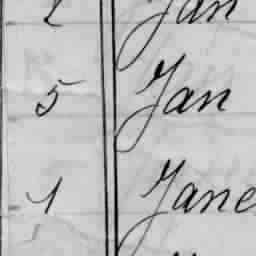 2 Jan
5 Jan
1 Jane